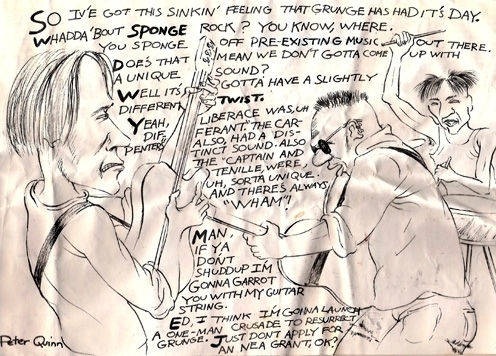 SO IV'E GOT THIS SINKIN' FEELING THAT GRUNGE HAS HAD IT'S DAY.
WHADDA 'BOUT SPONGE ROCK? YOU KNOW, WHERE.
YOU SPONGE OFF PRE-EXISTING MUSIC OUT THERE.
DOES THAT MEAN WE DON'T GOTTA COME UP WITH
A UNIQUE SOUND?
WELL IT'S GOTTA HAVE A SLIGHTLY
DIFFERENT TWIST.
YEAH, LIBERACE WAS, UH
DIF, FERANT. THE CAR-
PENTERS ALSO, HAD A DIS-
TINCT SOUND. ALSO
THE "CAPTAIN AND
TENILLE, WERE,
UH, SORTA UNIQUE.
AND THERE'S ALWAYS
"WHAM"!
MAN,
IF YA
DON'T
SHUDDUP I'M
GONNA GARROT
YOU WITH MY GUITAR
STRING.
ED, I THINK I'M GONNA LAUNCH
A ONE-MAN CRUSADE TO RESURRECT
GRUNGE. JUST DON'T APPLY FOR
AN NEA GRANT, OK?
Peter Quinn